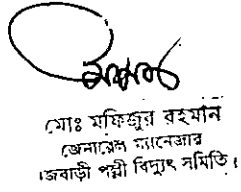 মোঃ মফিজুর রহমান
জেনারেল ম্যানেজার
জবাড়ী পল্লী বিদ্যুৎ সমিতি।